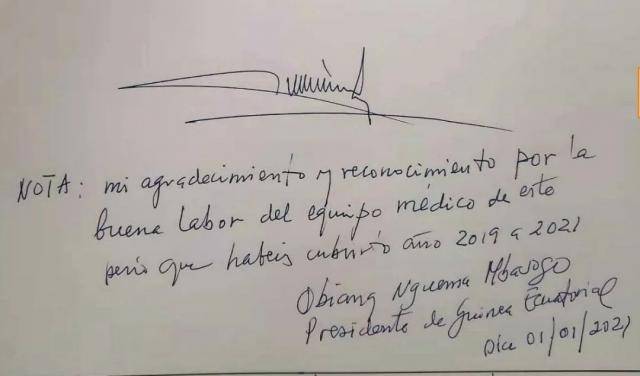 NOTA: mi agradecimiento y reconocimiento por la
buena labor del equipo médico de este
perio que habeis cubirto año 2019 a 2021
Obiang Nguema Mbasogo
Presidente de Guinea Ecuatorial
Día 01/01/2021